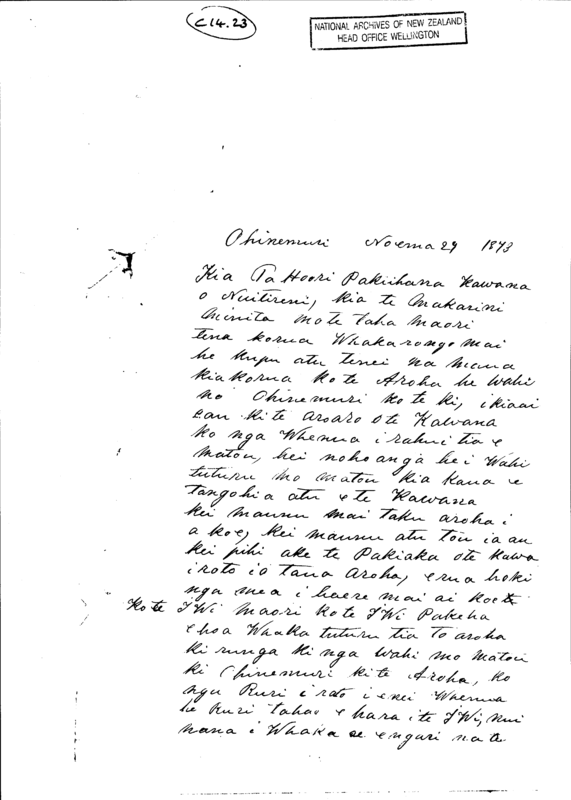 C 14.23
NATIONAL ARCHIVES OF NEW ZEALAND
HEAD OFFICE WELLINGTON
Ohinemuri Noema 29 1873
Kia Ta Hoori Pakiihana Kawana
o Nuitireni, kia te Makarini
Minita mo te taha Maori
tena korua Whakarongo mai
he kupu atu tenei na mana
kiakorua ko te Aroha he wahi
no Ohinemuri ko te ki, ikiaai
e au ki te aroaro ote Kawana
ko nga Whenua i rahui tia e
matou, hei nohoanga hei Wahi
tuturu mo matou kia Kaua e
tangohia atu e te Kawana
kei maunu mai taku aroha i
a koe, kei maunu atu tou ia au
kei pihi ake te Pakiaka ote Kawa
iroto i o taua Aroha, erua hoki
nga mea i haere mai ai koe
Ko te IWi Maori ko te IWi Pakeha
e hoa Whaka tuturu tia To aroha
ki runga ki nga Wahi mo matou
ki Ohinemuri ki te Aroha, ko
nga Ruri i roto i enei Whenua
he Ruri tahae e hara i te IWi, nui
nana i Whaka ae engari na te